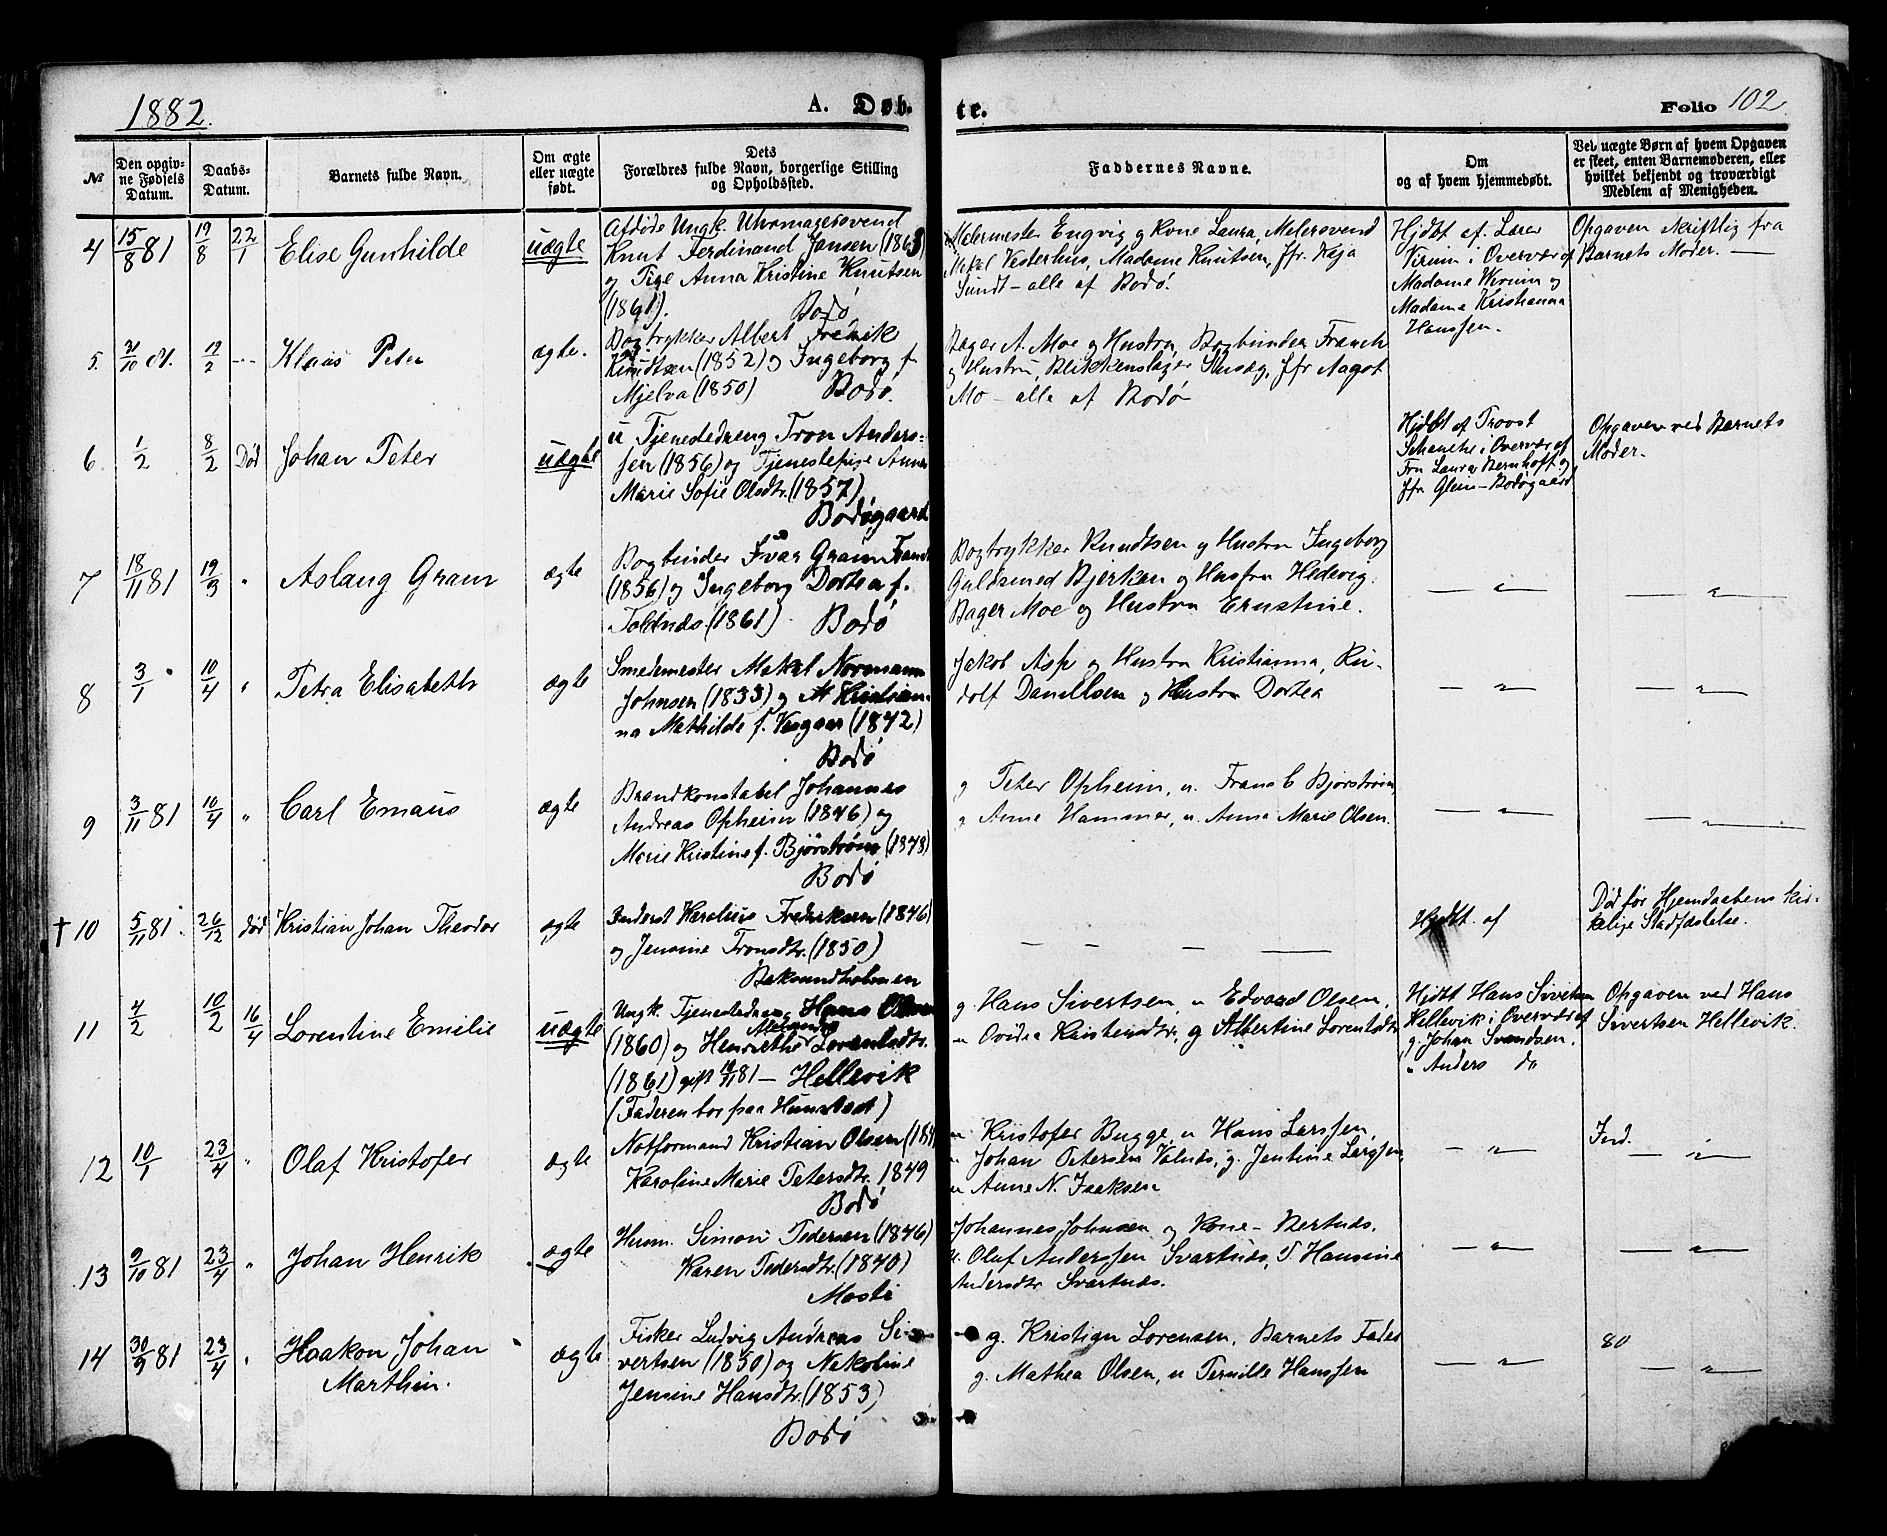 1882.
A. Døb-
te.
Folio 102
№
Den opgiv-
ne Fødsels
Datum.
Daabs-
Datum.
Barnets fulde Navn.
Om ægte
eller uægte
født.
Dets
Forældres fulde Navn, borgerlige Stilling
og Opholdssted.
Faddernes Navne.
Om
og af hvem hjemmedøbt.
Ved uægte Børn af hvem Opgaven
er skeet, enten Barnemoderen, eller
hvilket bekjendt og troværdigt
Medlem af Menigheden.
4 15/8 81 19/8 22/1 Elise Gunhilde uægte
Afdøde Ungk. Uhrmagersvend
Knut Ferdinand Jansen
og Pige Anna Kristine Knutsen
(1861). Bodø
Malermester Engvig og Kone Laura, Malersvend
Mekal Vesterhus, Madame Knutsen, Jfr. Kaja
Sundt - alle af Bodø.
Hjdbt af Lærer
Virum i Overvær af
Madame Wirum og
Madame Kristianna
Hanssen.
Opgaven skriftlig fra
Barnets Moder. —
5. 31/10 81. 19/2 Klaus Peter ægte.
Bogtrykker Albert Fredrik
Knudtsen (1852) og Ingeborg f.
Mjelva (1850) Bodø.
Bager A. Moe og Hustru, Bogbinder Franck
og Hustru, Blikkenslager, Jfr Aagot
Mo - alle af Bodø
6 1/2 8/2 Død Johan Peter uægte
u Tjenestedreng Tron Anders-
sen (1856) og Tjenestepige Anne
Marie Sofie Olsdtr. (1857)
Bodøgaard
Hjdbt af Provst
i Overvær af
Fru Laura Bernhoft og
Jfr - Bodøgaard
Opgaven ved Barnets
Moder.
7 18/11 81 19/3 " Aslaug Gram ægte
Bogbinder Ivar Gram Franck
(1856) og Ingeborg Dortea f.
(1861) Bodø
Bogtrykker Knudtsen og Hustru Ingeborg
Guldsmed Bjerken og Hustru Hedevig.
Bager Moe og Hustru Ernstine.
— " —
— " —
8 3/1 10/4 " Petra Elisabeth ægte
Smedemester Mekal Normann
Johnsen (1833) og Kristian-
na Mathilde f. (1842)
Bodø
Jakob Asp og Hustru Kristianna, Ru-
dolf Danielsen og Hustru Dortea
— " —
— " —
9 3/11 81 10/4 " Carl Emaus ægte
Brandkonstabel Johannes
Andreas Opheim (1846) og
Marie Kristine f. Bjørstrøm (1848)
Bodø
g Peter Opheim, u. Frans C Bjørstrøm,
g Anne Hammer, u. Anna Marie Olsen.
— " —
— " —
† 10 5/11 81. 26/12 død Kristian Johan Theodor ægte
Inderst Karolius Fredriksen (1846)
og Jensine Tronsdtr. (1850)
Baksundholmen
— — — —
Hjdbt. af
Død før Hjemdaabens kir-
kelige Stadfæstelse.
11 4/2 10/2 16/4 Lorentine Emilie uægte
Ungk. Tjenestedreng Hans Olsen
(1860) og Henriette Lorentsdtr.
(1861) gift 81 — Hellevik
(Faderen bor paa Hunstad)
g. Hans Sivertsen, u Edvard Olsen,
u Ovidia Kristensdtr, g Albertine Lorentsdtr
Hjdbt Hans Sivertsen
Hellevik i Overvær af
g. Johan Svendsen.
" Anders do
Opgaven ved Hans
Sivertsen Hellevik.
12 10/1 23/4 " Olaf Kristofer ægte
Notformand Kristian Olsen
Karoline Marie Petersdtr. 1849
Bodø
u Kristofer Bugge, u Hans Larssen,
Johan Petersen Valnes, g. Jentine Larssen,
u Anne N. Isaksen
— " —
Ind.
— " —
13 9/10 81 23/4 " Johan Henrik ægte
Husm. Simon Pedersen (1846)
Karen Pedersdtr. (1840)
Mosti
Johannes Johnsen og Kone - Bertnes.
u. Olaf Anderssen Svartnes, P. Hansine
Andersdtr Svartnes.
— " —
— " —
14 30/9 81 23/4 " Haakon Johan
Marthin. ægte
Fisker Ludvig Andreas Si-
vertsen (1850) og Nekoline
Jensine Hansdtr. (1853)
Bodø
g. Kristian Lorensen, Barnets Fader
g. Mathea Olsen, u Pernille Hanssen
— " —
80
— " —